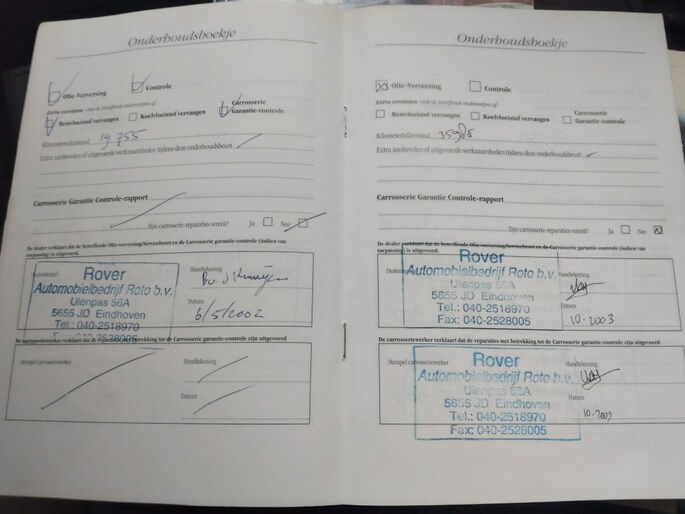 Onderhoudsboekje
Olie-Verversing
Controle
Extra vereisten
Remvloeistof vervangen
Koelvloeistof vervangen
Carrosserie Garantie-controle
Kilometertellerstand 19 755
Extra aanbevolen of uitgevoerde werkzaamheden tijdens deze onderhoudsbeurt
Carrosserie Garantie Controle-rapport
Zijn carrosserie-reparaties vereist? Ja Nee
De dealer verklaart dat de betreffende Olie-verversing/Servicebeurt en de Carrosserie garantie-controle (indien van
toepassing) is uitgevoerd.
Handtekening
Rover
Automobielbedrijf Roto b.v.
Ulenpas 56A
5655 JD Eindhoven
Tel.: 040-2518970
Fax: 040-2528005
Datum
6/5/2002
De carrosseriewerker verklaart dat de reparaties met betrekking tot de Carrosserie garantie-controle zijn uitgevoerd
Stempel carrosseriewerker
Handtekening
Datum
Onderhoudsboekje
Olie-Verversing
Controle
Extra vereisten
Remvloeistof vervangen
Koelvloeistof vervangen
Carrosserie Garantie-controle
Kilometertellerstand 35985
Extra aanbevolen of uitgevoerde werkzaamheden tijdens deze onderhoudsbeurt
Carrosserie Garantie Controle-rapport
Zijn carrosserie-reparaties vereist? Ja Nee
De dealer verklaart dat de betreffende Olie-verversing/Servicebeurt en de Carrosserie garantie-controle (indien van
toepassing) is uitgevoerd.
Handtekening
Rover
Automobielbedrijf Roto b.v.
Ulenpas 56A
5655 JD Eindhoven
Tel.: 040-2518970
Fax: 040-2528005
Datum
10-2003
De carrosseriewerker verklaart dat de reparaties met betrekking tot de Carrosserie garantie-controle zijn uitgevoerd
Stempel carrosseriewerker
Handtekening
Rover
Automobielbedrijf Roto b.v.
Ulenpas 56A
5655 JD Eindhoven
Tel.: 040-2518970
Fax: 040-2528005
Datum
10-2003